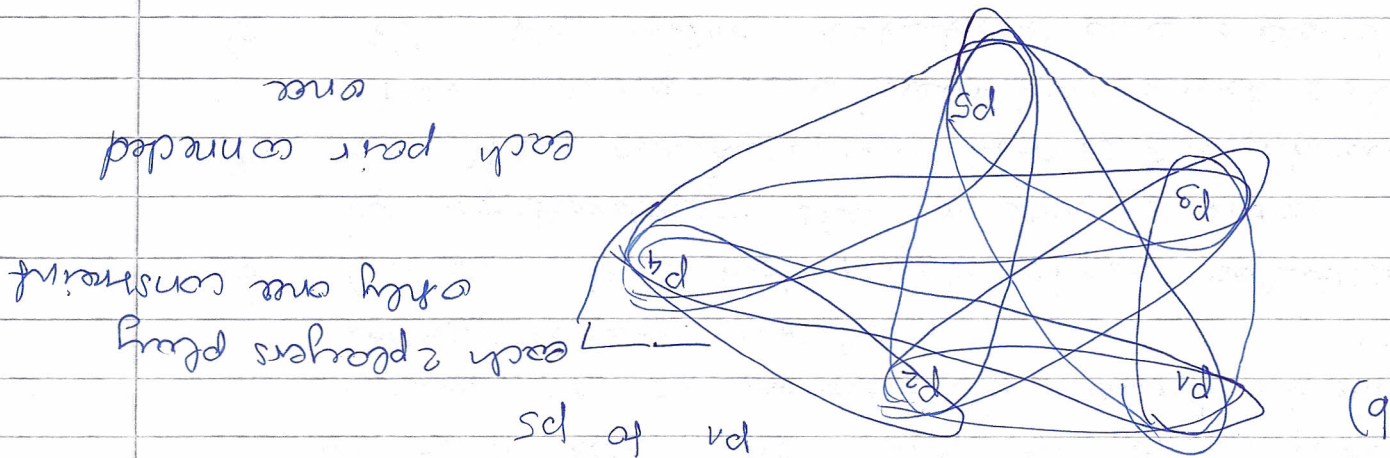 b)
p1 to p5
p1
p2
each 2 players play
only once constraint
p4
p3
each pair connected
once
p5